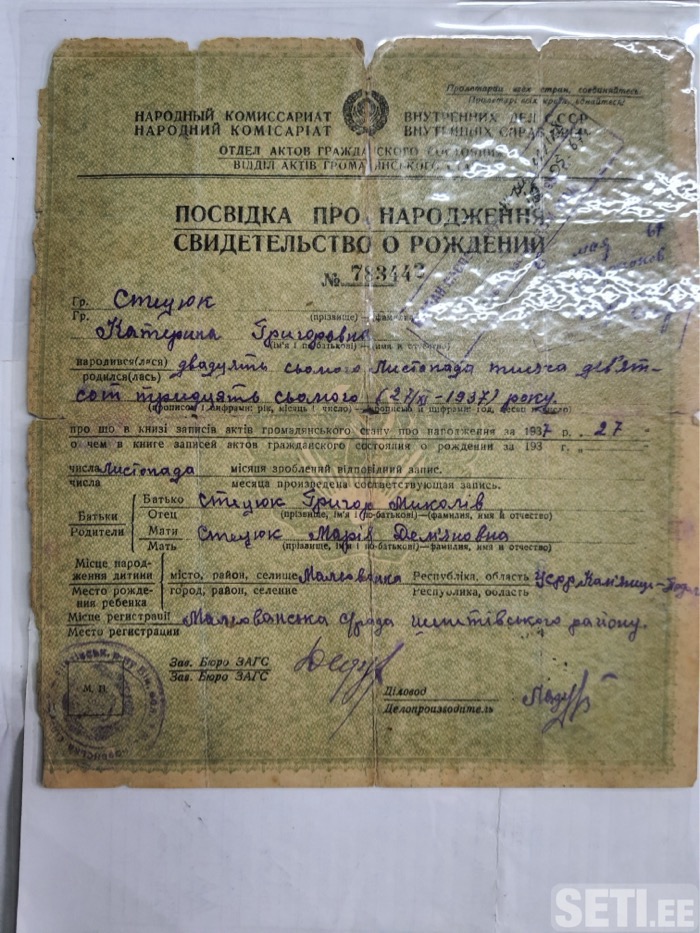 Пролетарии всех стран, соединяйтесь
Пролетарі всіх країн, єднайтеся!
НАРОДНЫЙ КОМИССАРИАТ ВНУТРЕННИХ ДЕЛ СССР
НАРОДНИЙ КОМІСАРІАТ ВНУТРІШНІХ СПРАВ
ОТДЕЛ АКТОВ ГРАЖДАНСКОГО СОСТОЯНИЯ
ВІДДІЛ АКТІВ ГРОМАДЯНСЬКОГО
ПОСВІДКА ПРО НАРОДЖЕННЯ
СВИДЕТЕЛЬСТВО О РОЖДЕНИИ
№ 783442
Гр. Стецюк
Гр. (прізвище)—фамилия
Катерина Григоровна
(ім'я і по-батькові)—имя и отчество)
народився(лася) двадцять сьомого Листопада тисяча дев'ят-
родился(лась)
сот тридцять сьомого (27/XI-1937) року.
(прописом і цифрами: рік, місяць і число)—прописью и цифрами: год, месяц и число)
про що в книзі записів актів громадянського стану про народження за 1937 р. 27
о чем в книге записей актов гражданского состояния о рождении за 193 г. „
числа Листопада місяця зроблений відповідний запис.
числа месяца произведена соответствующая запись.
Батьки
Родители
Батько Стецюк Григор Миколів
Отец (прізвище, ім'я і по-батькові)—(фамилия, имя и отчество)
Мати Стецюк Марія Дем'яновна
Мать (прізвище, ім'я і по-батькові)—(фамилия, имя и отчество)
Місце народ-
ження дитини місто, район, селище Мальованка Республіка, область Усрр Кам'янець-Под
Место рожде- город, район, селение Республика, область
ния ребенка
Місце регистрації Мальованська с/рада району.
Место регистрации
Зав. Бюро ЗАГС
Зав. Бюро ЗАГС
М. П.
Діловод
Делопроизводитель
SETI.ee